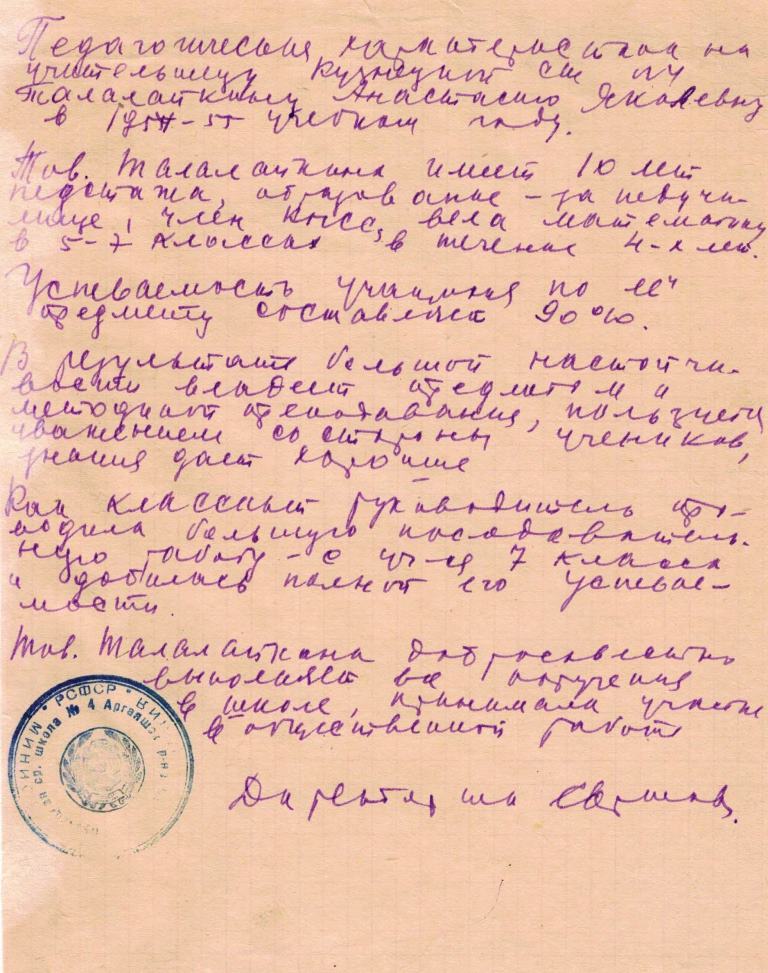 Педагогическая характеристика на
учительницу Кузнецкой ср. шк
Талалайкину Анастасию Яковлевну
в 1954-55 учебном году.
Тов. Талалайкина имеет 10 лет
педстажа, образование - за педучи-
лище, член КПСС, вела математику
в 5-7 классах в течение 4-х лет.
Успеваемость учащихся по её
предмету составляет 90%.
В результате большой настойчи-
вости владеет предметом и
методикой преподавания, пользуется
уважением со стороны учеников,
знания дает хорошие
Как классный руководитель про-
водила большую последователь-
ную работу с уч-ся 7 класса
и добилась полной его успевае-
мости.
Тов. Талалайкина добросовестно
выполняет все поручения
в школе, принимала участие
в общественной работе
Директор шк
РСФСР
ср. школа № 4 Аргаяшс. р-на